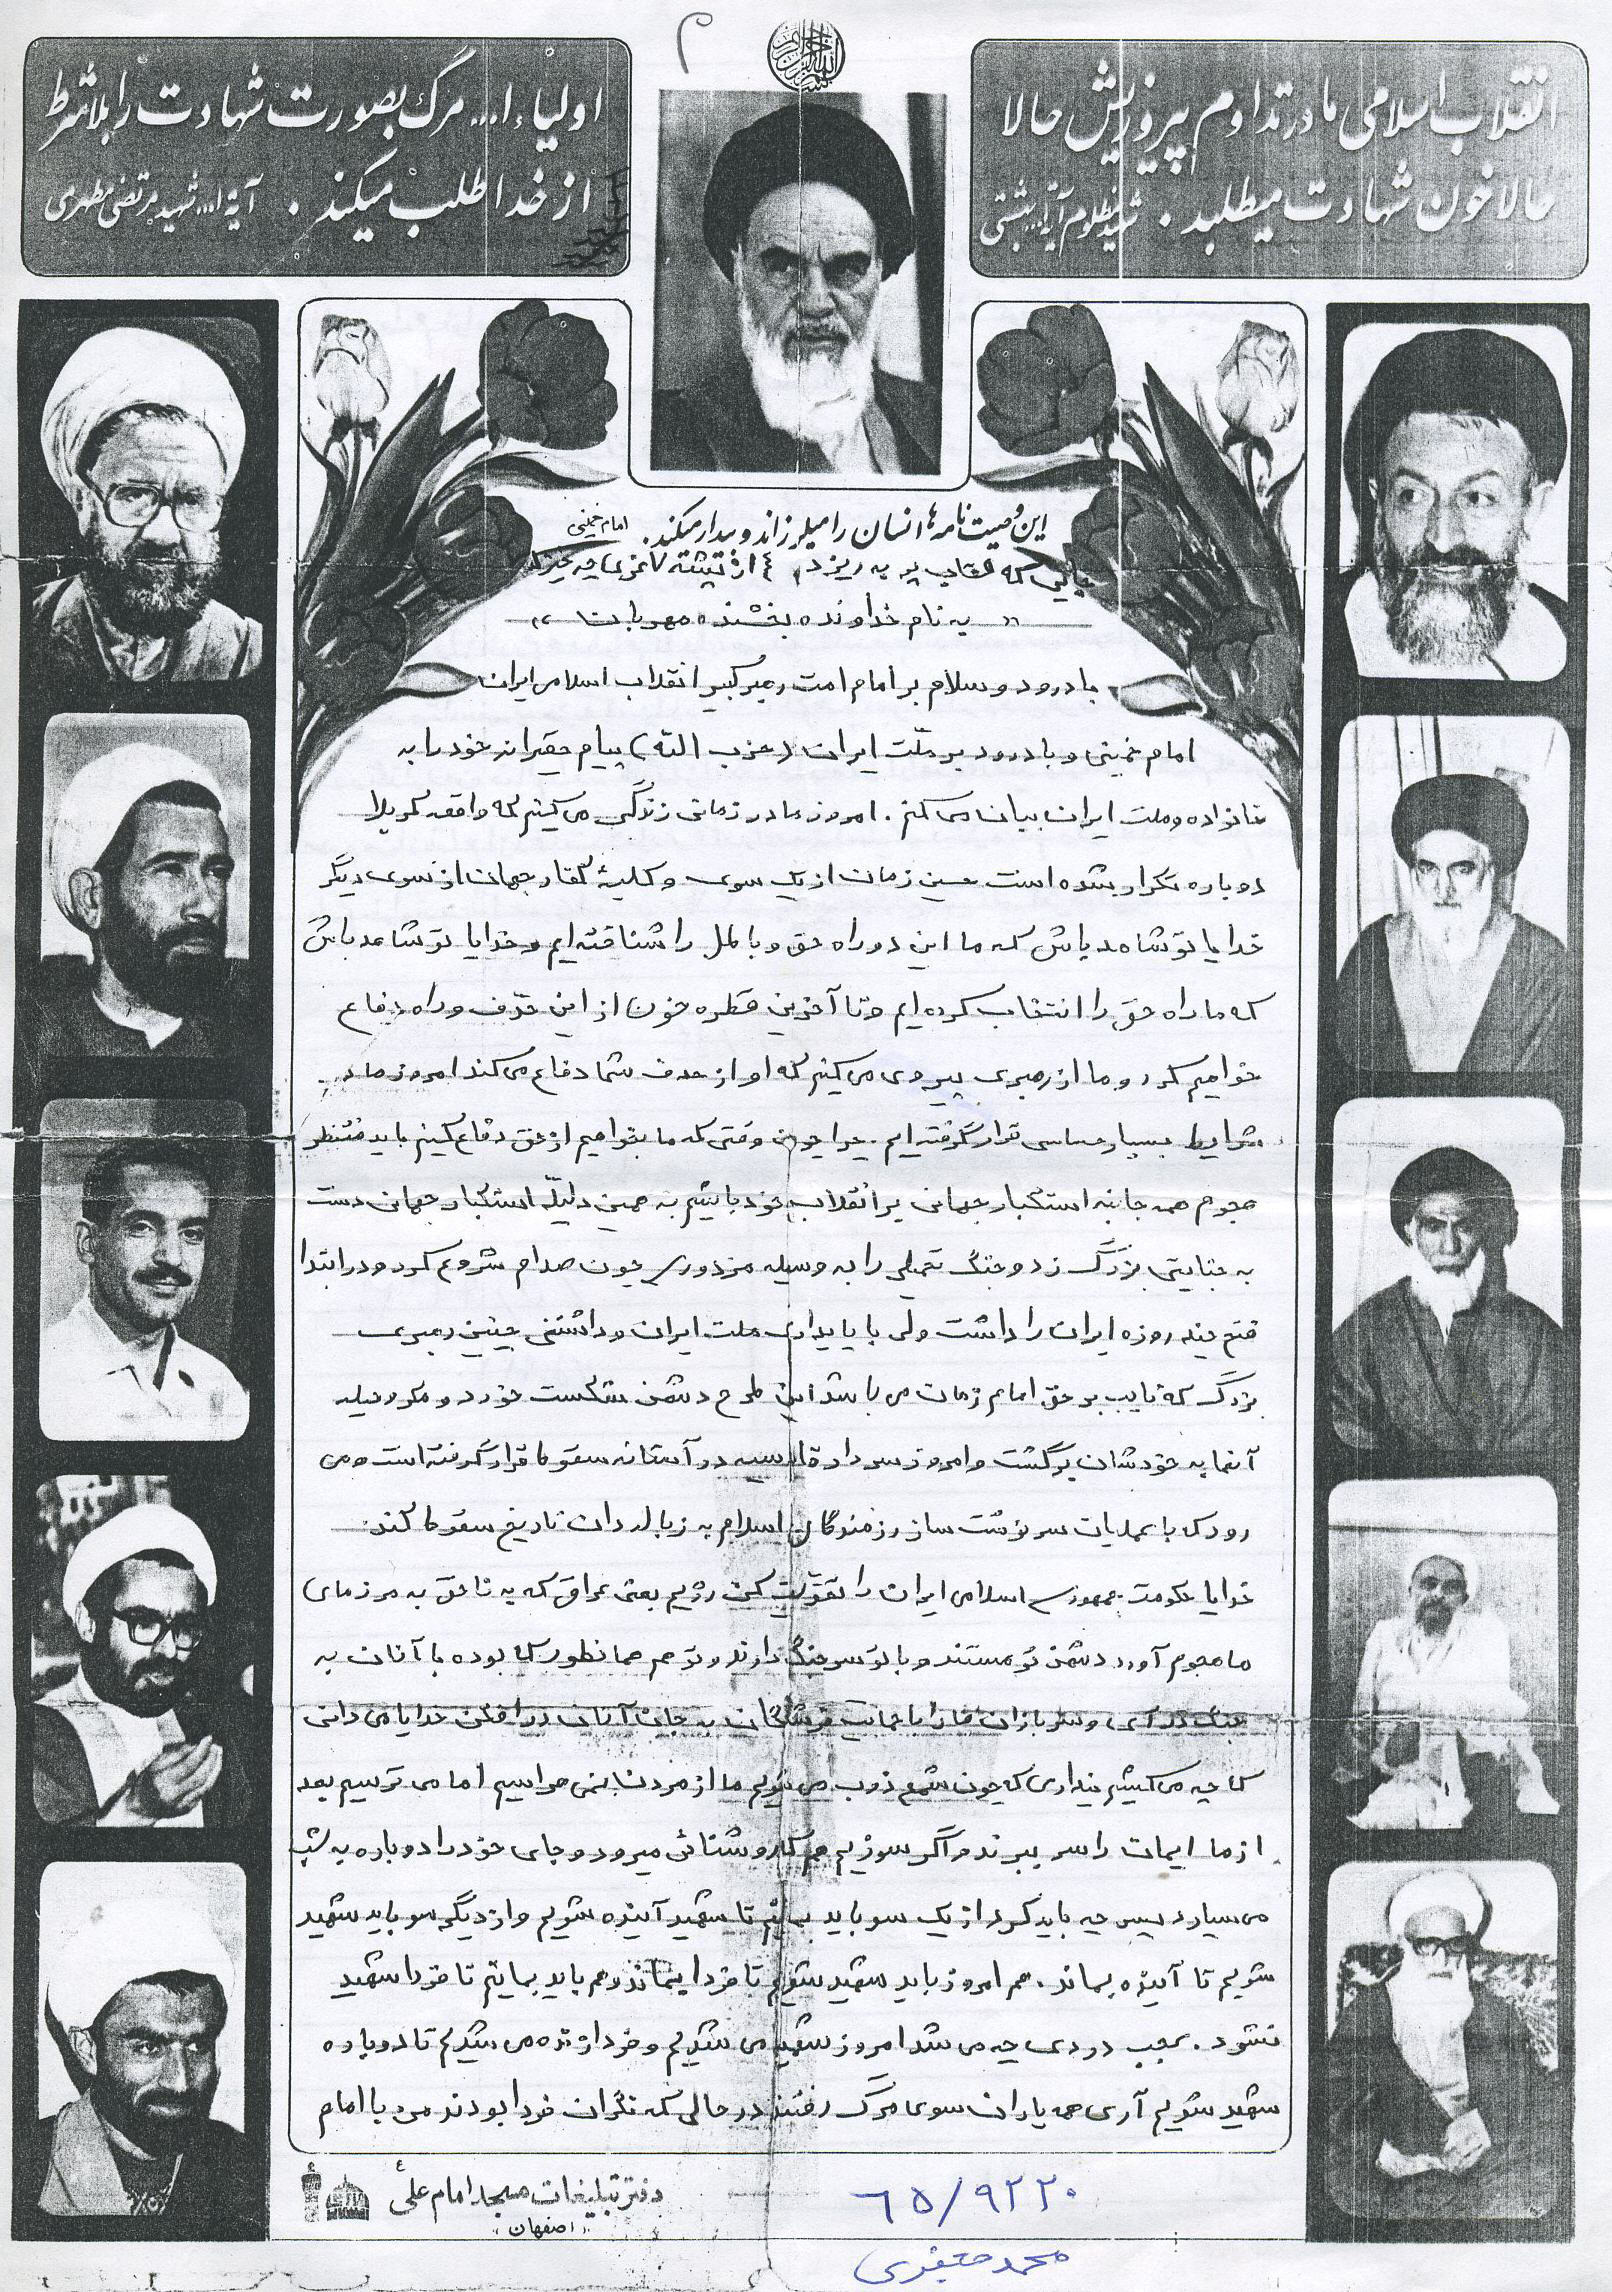 ۲
انقلاب اسلامی ما در تداوم پیروزیش حالا
حالا خون شهادت میطلبد . شهید مظلوم آیة... بهشتی
اولیاء ا... مرگ بصورت شهادت را بلاشرط
از خدا طلب میکند . آیة ا... شهید مرتضی مطهری
این وصیت نامه ها انسان را میلرزاند و بیدار میکند. امام خمینی
جائی که عقاب پر بریزد از پشه لاغری چه خیزد
« به نام خداونده بخشنده مهربان »
با درود و سلام بر امام امت رهبر کبیر انقلاب اسلامی ایران
امام خمینی و با درود بر ملّت ایران (حزب الله) پیام حقیرانه خود را به
خانواده و ملت ایران بیان می کنم . امروز ما در زمانی زندگی می کنیم که واقعه کربلا
دوباره تکرار شده است حسین زمان از یک سوی و کلیهٔ کفار جهان از سوی دیگر
خدایا تو شاهد باش که ما این دو راه حق و باطل را شناخته ایم و خدایا تو شاهد باش
که ما راه حق را انتخاب کرده ایم و تا آخرین قطره خون از این هدف و راه دفاع
خواهیم کرد و ما از رهبری پیروی می کنیم که او از هدف شما دفاع می کند امروز ما در
شرایط بسیار حساسی قرار گرفته ایم . چرا چون وقتی که ما بخواهیم از حق دفاع کنیم باید منتظر
هجوم همه جانبه استکبار جهانی بر انقلاب خود باشیم به همین دلیله استکبار جهانی دست
به جنایتی بزرگ زد و جنگ تحمیلی را به وسیله مزدوری چون صدام شروع کرد و در ابتدا
فتح چند روزه ایران را داشت ولی با پایداری ملت ایران و داشتن چنین رهبری
بزرگ که نایب بر حق امام زمان می باشد این طرح دشمن شکست خورد و مکر و حیله
آنها به خودشان برگشت و امروز سردار قادسیه در آستانه سقوط قرار گرفته است و می
رود که با عملیات سرنوشت ساز رزمندگان اسلام به زباله دان تاریخ سقوط کند.
خدایا حکومت جمهوری اسلامی ایران را تقویت کن رژیم بعثی عراق که به ناحق به مرزهای
ما هجوم آورد دشمن تو هستند و با تو سر جنگ دارند و تو هم همانطور که بوده با آنان به
جنگ در آی و سربازان ما را با حمایت فرشتگان به جان آنان در افکن خدایا می دانی
که چه می کشیم پنداری که چون شمع ذوب می شویم ما از مردن نمی هراسیم اما می ترسیم بعد
از ما ایمان را سر ببرند و اگر سوزیم هم که روشنائی میرود و جای خود را دوباره به شب
می سپارد پس چه باید کرد از یک سو باید بمانیم تا شهید آینده شویم و از دیگر سو باید شهید
شویم تا آینده بماند . هم امروز باید شهید شویم تا فردا بماند و هم باید بمانیم تا فردا شهید
نشود . عجب دردی چه می شد امروز شهید می شدیم و فردا زنده می شدیم تا دوباره
شهید شویم آری همه یاران سوی مرگ رفتند در حالی که نگران فردا بودند من با امام
دفتر تبلیغات مسجد امام علی ع
(اصفهان)
۶۵/۹۲۲۰
محمد جعفری